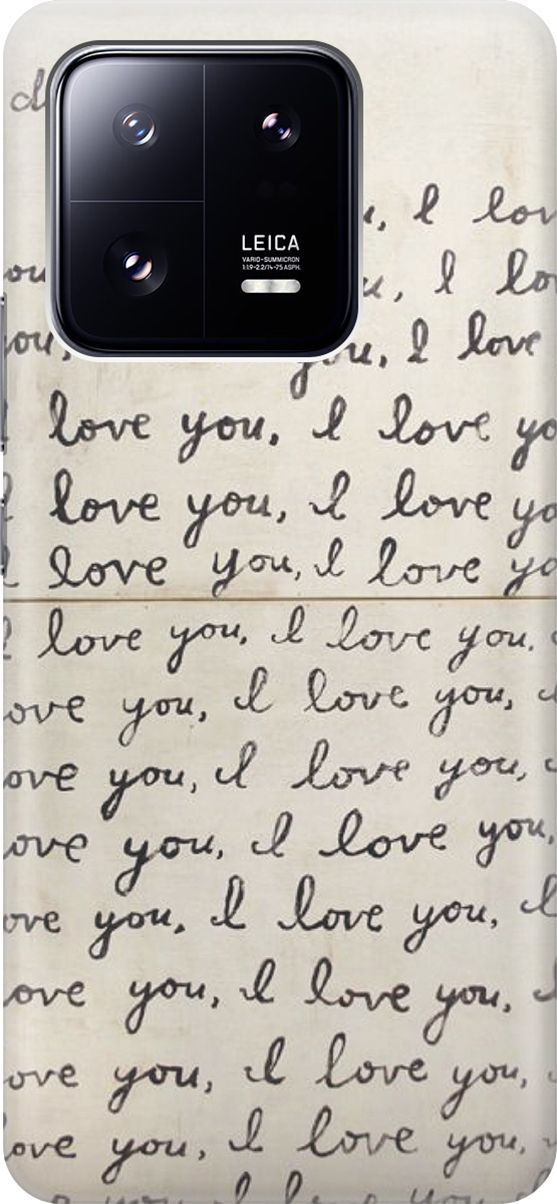 LEICA
VARIO-SUMMICRON
1:1.9-2.2/14-75 ASPH.
I
I
you, I love
I love you, I love
I love you, I love
I love you, I love
I love you, I love you,
you, I love you,
you, I love you,
you, I love you,
you, I love you,
you, I love you,
you, I love you,
you, I love you,